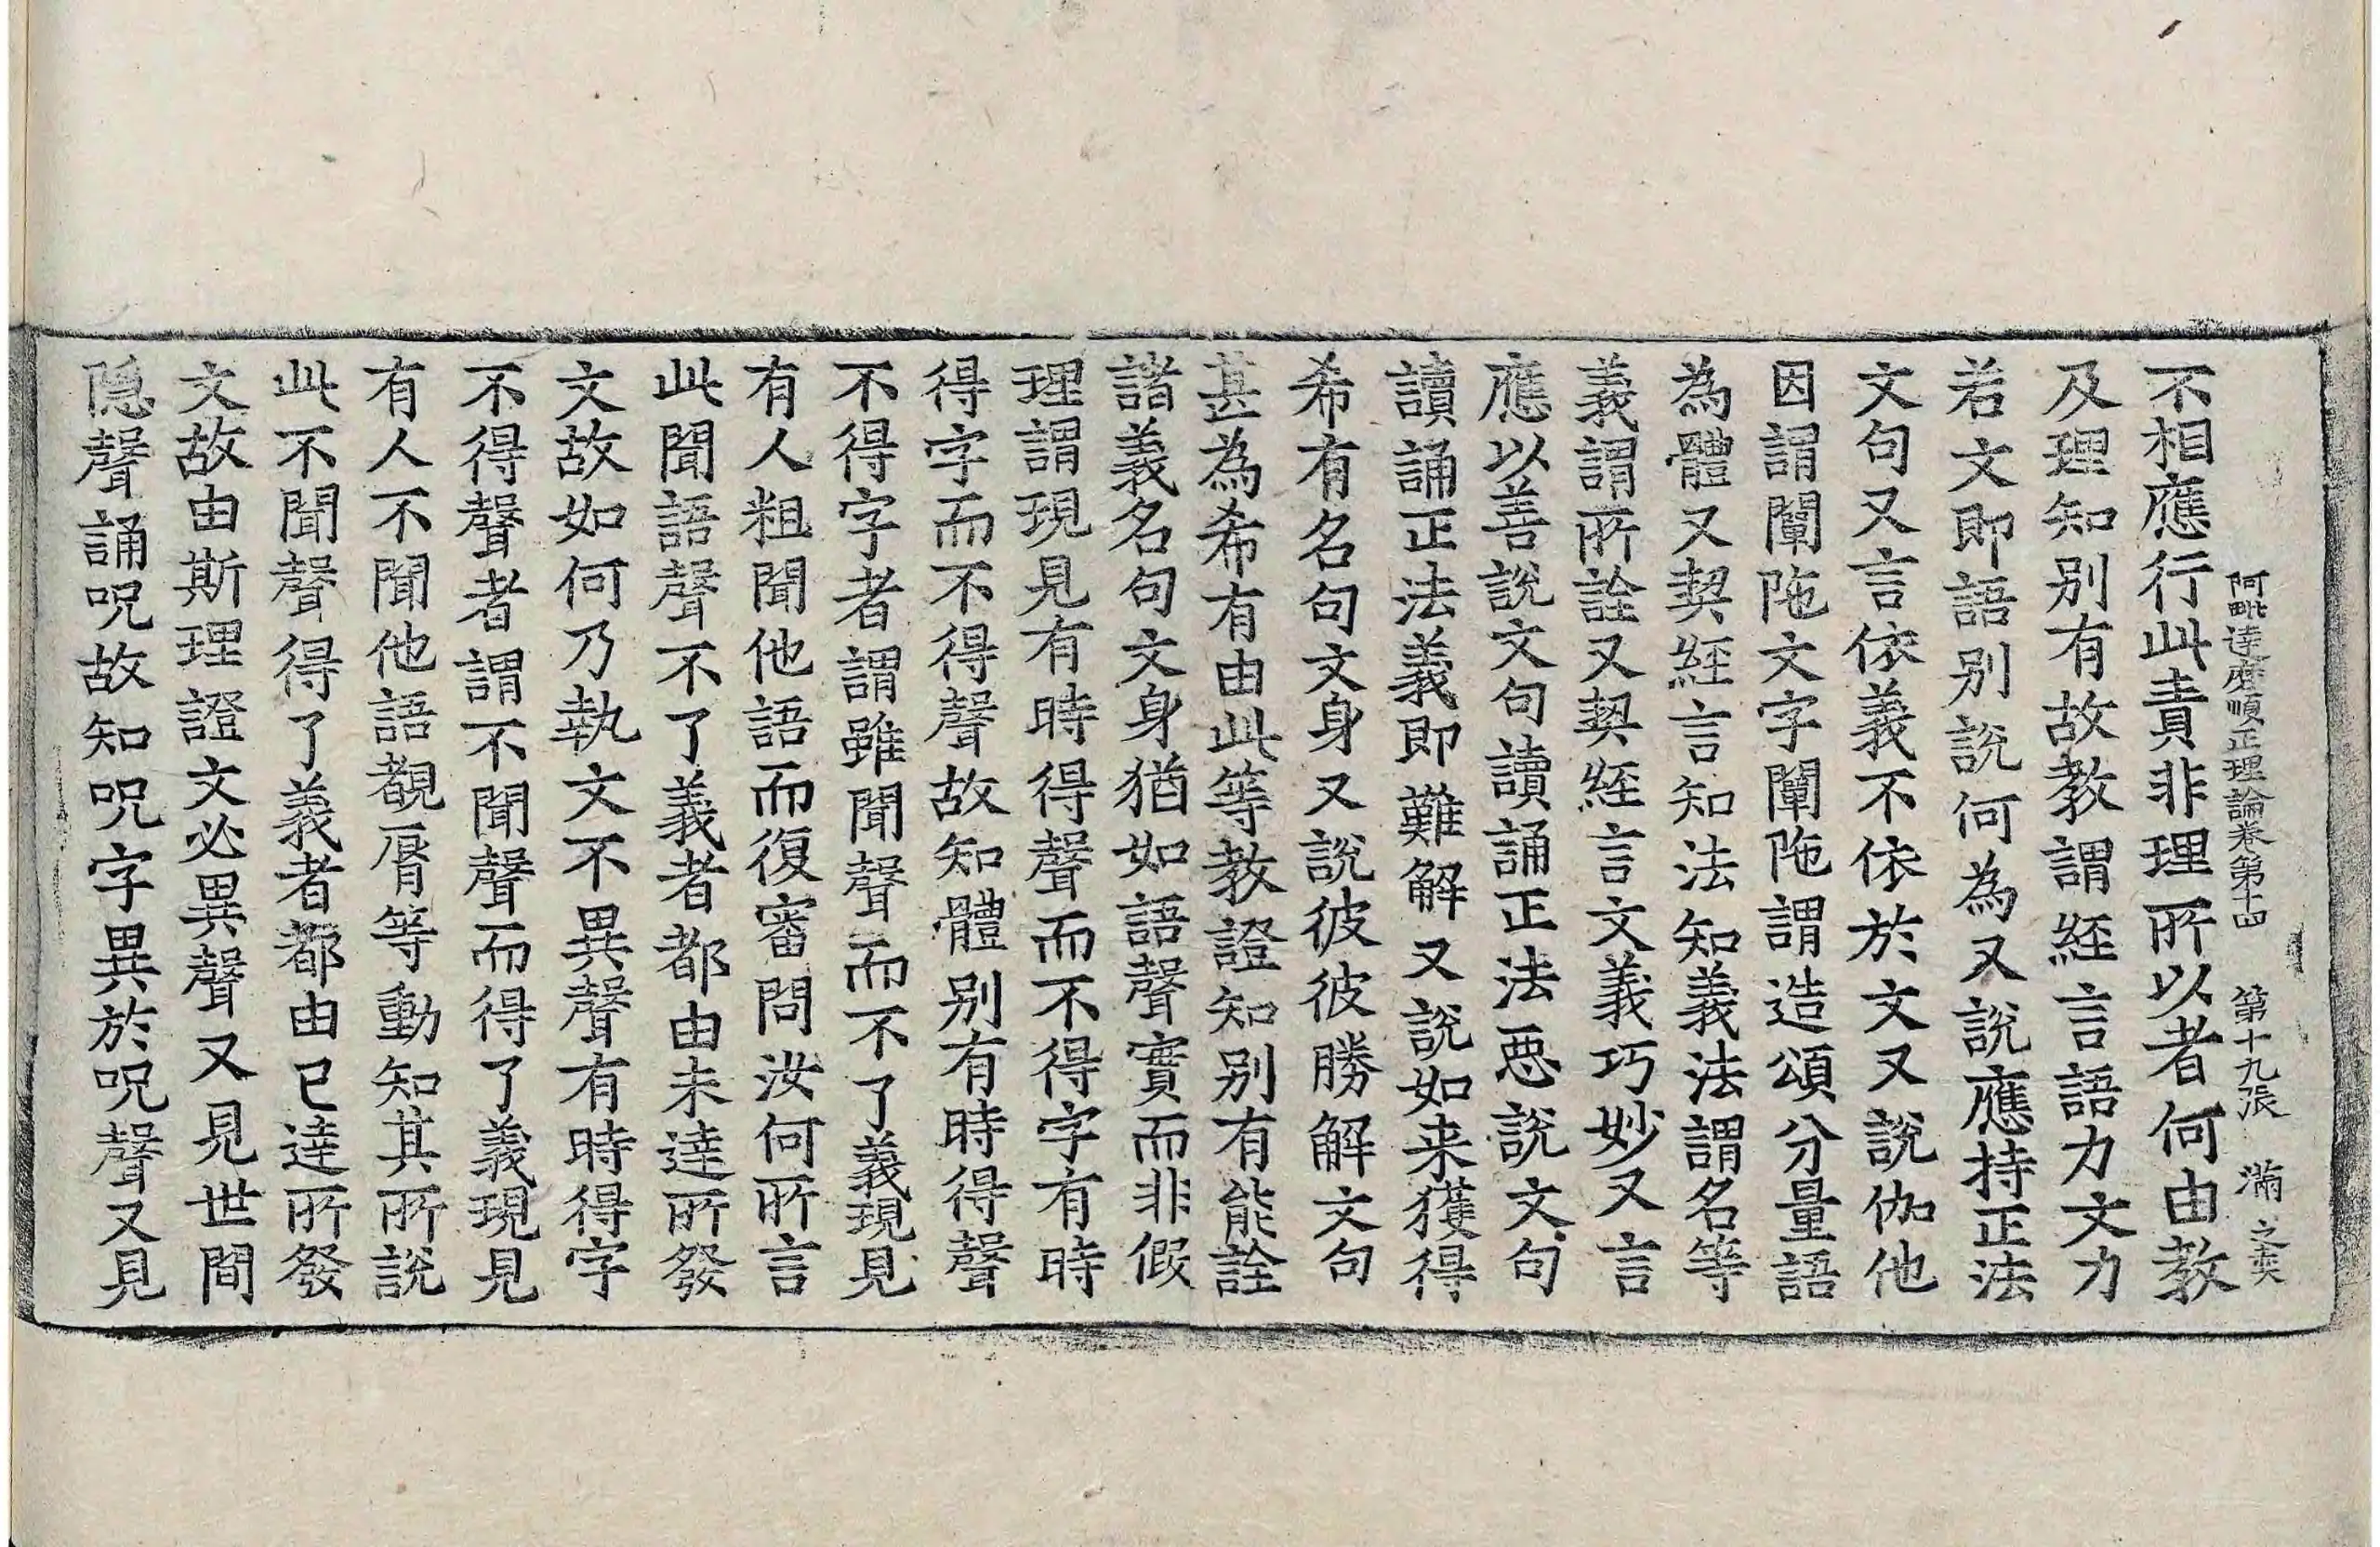 阿毗達磨順正理論卷第十四 第十九張 滿 之奕
不相應行此責非理所以者何由教
及理知別有故教謂經言語力文力
若文即語別說何為又說應持正法
文句又言依義不依於文又說伽他
因謂闡陁文字闡陁謂造頌分量語
為體又契經言知法知義法謂名等
義謂所詮又契經言文義巧妙又言
應以善說文句讀誦正法惡說文句
讀誦正法義即難解又說如来獲得
希有名句文身又說彼彼勝解文句
甚為希有由此等教證知別有能詮
諸義名句文身猶如語聲實而非假
理謂現見有時得聲而不得字有時
得字而不得聲故知體別有時得聲
不得字者謂雖聞聲而不了義現見
有人粗聞他語而復審問汝何所言
此聞語聲不了義者都由未達所發
文故如何乃執文不異聲有時得字
不得聲者謂不聞聲而得了義現見
有人不聞他語覩脣等動知其所說
此不聞聲得了義者都由已達所發
文故由斯理證文必異聲又見世間
隱聲誦呪故知呪字異於呪聲又見